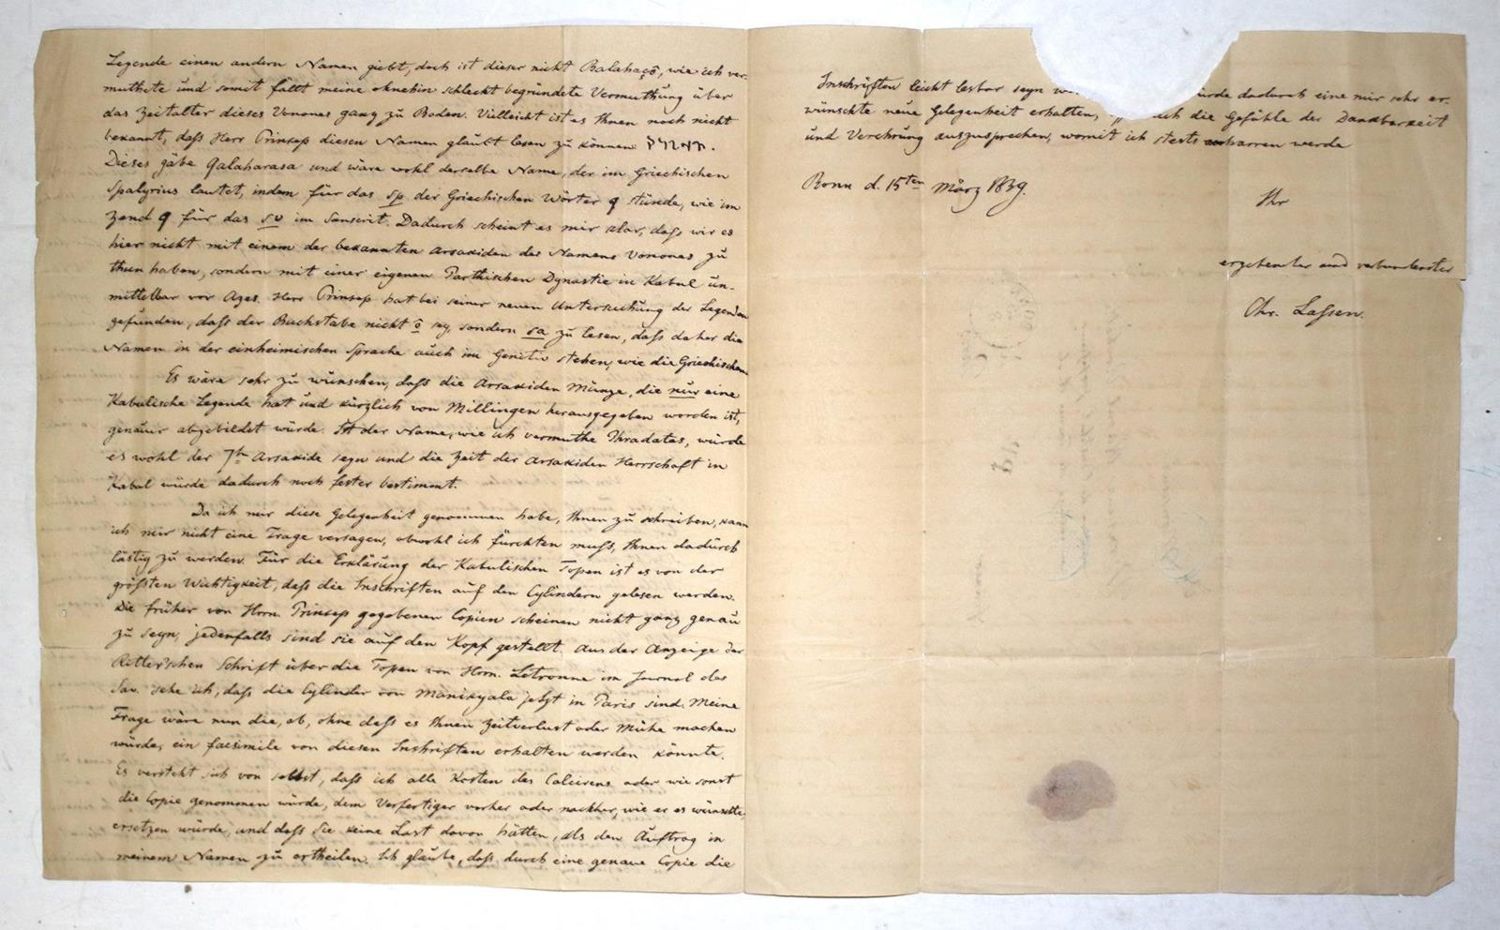 Legende einen andern Namen giebt, doch ist dieser nicht Balahaçô, wie ich ver-
muthete und somit fällt meine ohnehin schlecht begründete Vermuthung über
das Zeitalter dieses Vonones ganz zu Boden. Vielleicht ist es Ihnen noch nicht
bekannt, daſs Herr Prinsep diesen Namen glaubt lesen zu können
Dieses gäbe qalaharasa und wäre wohl derselbe Name, der im Griechischen
Spalyrius lautet, indem für das sp der Griechischen Wörter q stünde, wie im
Zend q für das sv im Sanscrit. Dadurch scheint es mir klar, daſs wir es
hier nicht mit einem der bekannten Arsakiden des Namens Vonones zu
thun haben, sondern mit einer eigenen Parthischen Dynastie in Kabul un-
mittelbar vor Azes. Herr Prinsep hat bei seiner neuen Untersuchung der Legenden
gefunden, daſs der Buchstabe nicht ô sey, sondern sa zu lesen, daſs daher die
Namen in der einheimischen Sprache auch im Genitiv stehen, wie die Griechischen
Es wäre sehr zu wünschen, daſs die Arsakiden Münze, die nur eine
Kabulische Legende hat und kürzlich von Millingen herausgegeben worden ist,
genauer abgebildet würde. Ist der Name, wie ich vermuthe Phradates, würde
es wohl der 7te Arsakide seyn und die Zeit der Arsakiden Herrschaft in
Kabul würde dadurch noch fester bestimmt.
Da ich mir diese Gelegenheit genommen habe, Ihnen zu schreiben, kann
ich mir nicht eine Frage versagen, obwohl ich fürchten muſs, Ihnen dadurch
lästig zu werden. Für die Erklärung der Kabulischen Topen ist es von der
gröſsten Wichtigkeit, daſs die Inschriften auf den Cylindern gelesen werden.
Die früher von Hrrn. Prinsep gegebenen Copien scheinen nicht ganz genau
zu seyn, jedenfalls sind sie auf den Kopf gestellt. Aus der Anzeige der
Ritter'schen Schrift über die Topen von Hrrn. Letronne im Journal des
Sav. sehe ich, daſs die Cylinder von Manikyala jetzt in Paris sind. Meine
Frage wäre nun die, ob, ohne daſs es Ihnen Zeitverlust oder Mühe machen
würde, ein facsimile von diesen Inschriften erhalten werden könnte.
Es versteht sich von selbst, daſs ich alle Kosten des Calcirens oder wie sonst
die Copie genommen würde, dem Verfertiger vorher oder nachher, wie er es wünschte,
ersetzen würde, und daſs Sie keine Last davon hätten, als den Auftrag in
meinem Namen zu ertheilen. Ich glaube, daſs durch eine genaue Copie die
Inschriften leicht lesbar seyn würde dadurch eine mir sehr er-
wünschte neue Gelegenheit erhalten, die Gefühle der Dankbarkeit
und Verehrung auszusprechen, womit ich stets verharren werde
Bonn d. 15ten März 1839.
Ihr
ergebenster und verbundenster
Chr. Laſsen.